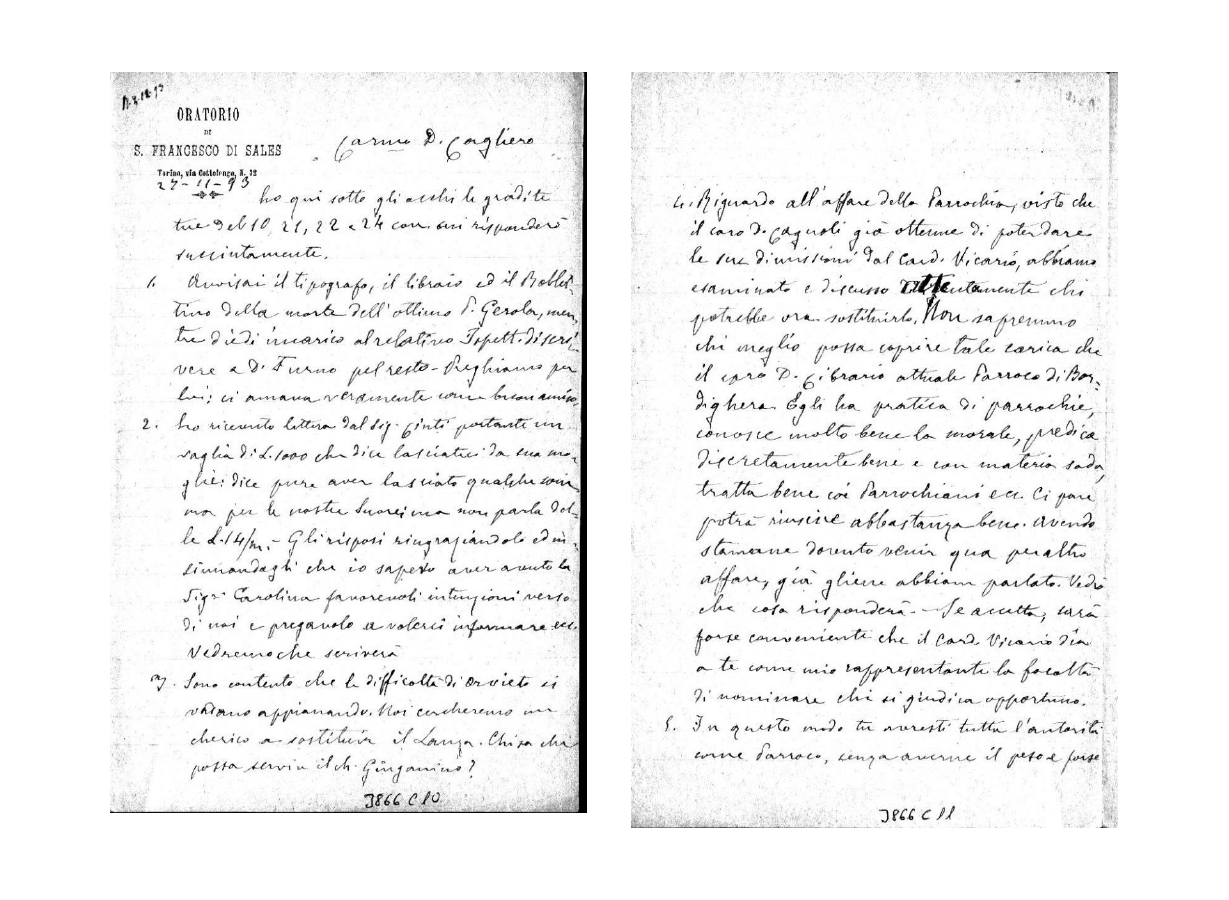 ORATORIO
DI
S. FRANCESCO DI SALES
Torino, via Cottolengo, N. 32
27-11-93
Car.mo D. Cagliero
ho qui sotto gli occhi le gradite
tue del 10, 21, 22 e 24 corr. cui risponderò
succintamente.
1. Avvisai il tipografo, il libraio ed il Bollet-
tino della morte dell'ottimo P. Gerola, men-
tre diedi incarico al relativo Ispett. di scri-
vere a D. Furno pel resto - Preghiamo per
lui; ci amava veramente come buon amico.
2. ho ricevuto lettera dal Sig. Cinti portante un
vaglia di L. 1000 che dice lasciatici da sua mo-
glie: dice pure aver lasciato qualche som-
ma per le nostre Suore; ma non parla del-
le L. 14/m. - Gli risposi ringraziandolo ed in-
sinuandogli che io sapevo aver avuto la
Sig.ra Carolina favorevoli intenzioni verso
di noi e pregavolo a volerci informare ecc.
Vedremo che scriverà
3. Sono contento che le difficoltà di Orvieto si
vadano appianando. Noi cercheremo un
cherico a sostituir il Lanza. Chi sa che
possa servir il ch.Ginganino?
3866 C 10
4. Riguardo all'affare della Parrochia, visto che
il caro D. Cagnoli già ottenne di poter dare
le sue dimissioni dal Card. Vicario, abbiamo
esaminato e discusso attentamente chi
potrebbe ora sostituirlo. Non sapremmo
chi meglio possa coprire tale carica che
il caro D. Cibrario attuale Parroco di Bor-
dighera. Egli ha pratica di parrochie,
conosce molto bene la morale, predica
discretamente bene e con materia soda,
tratta bene coi Parrochiani ecc. Ci pare
potrà riuscire abbastanza bene. Avendo
stamane dovuto venir qua per altro
affare, già gliene abbiam parlato. Vedrò
che cosa risponderà - Se accetta, sarà
forse conveniente che il Card. Vicario dia
a te come mio rappresentante la facoltà
di nominare chi si giudica opportuno.
5. In questo modo tu avresti tutta l'autorità
come Parroco, senza averne il peso e forse
3866 C 11